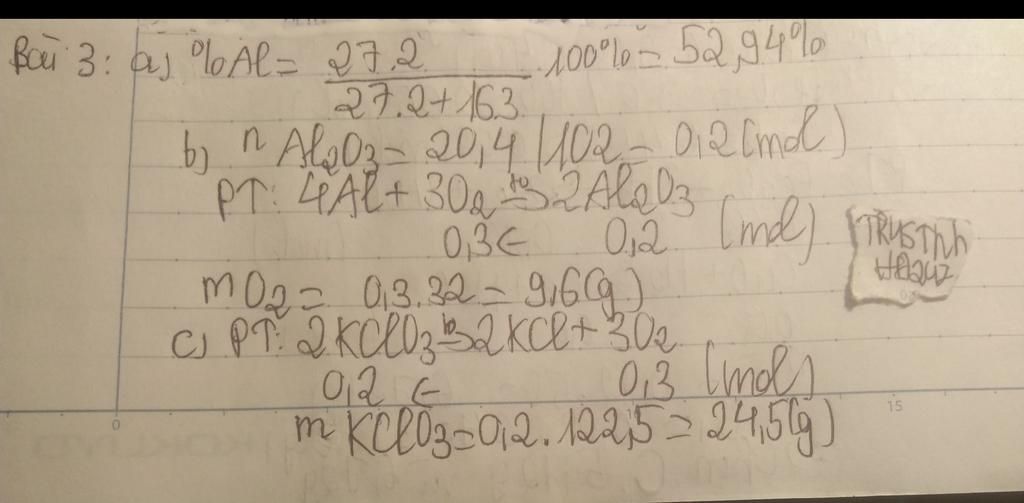 Bài 3: a) %Al = 27.2 / 27.2+16.3 .100% = 52,94%
b) n Al2O3 = 20,4 / 102 = 0,2 (mol)
PT: 4Al + 3O2 t° → 2Al2O3
0,3 ← 0,2 (mol)
mO2 = 0,3.32 = 9,6 (g)
c) PT: 2KClO3 t° → 2KCl + 3O2
0,2 ← 0,3 (mol)
m KClO3 = 0,2.122,5 = 24,5 (g)
0
15